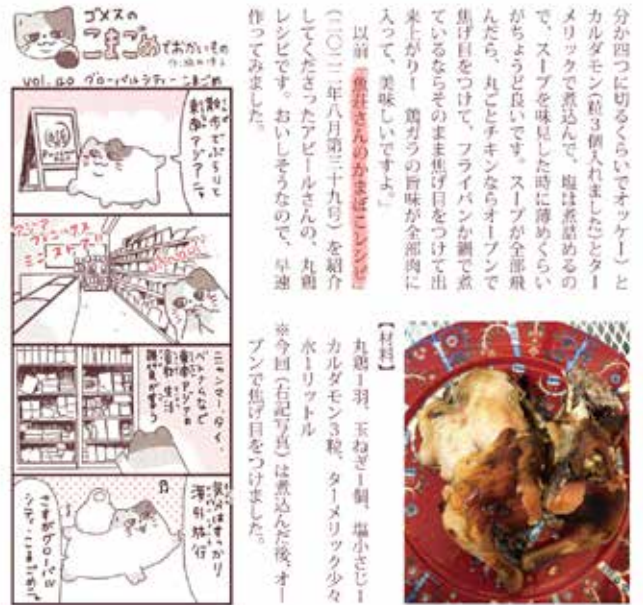 分か四つに切るくらいでオッケー）と
カルダモン（粒3個入れました）とター
メリックで煮込んで、塩は煮詰めるの
で、スープを味見した時に薄めくらい
がちょうど良いです。スープが全部飛
んだら、丸ごとチキンならオーブンで
焦げ目をつけて、フライパンか鍋で煮
ているならそのまま焦げ目をつけて出
来上がり！　鶏ガラの旨味が全部肉に
入って、美味しいですよ。」
以前『魚荘さんのかまぼこレシピ』
（二〇二二年八月第三十九号）を紹介
してくださったアビールさんの、丸鶏
レシピです。おいしそうなので、早速
作ってみました。
【材料】
丸鶏1羽、玉ねぎ1個、塩小さじ1
カルダモン3粒、ターメリック少々
水1リットル
※今回（右記写真）は煮込んだ後、オー
ブンで焦げ目をつけました。
ゴメスの
こまごめ
でおかいもの
vol.40 グローバルシティーこまごめ
散歩でぶらりと
東南アジアに。
アジア
ミニストアー!!
ミャンマー、タイ、
ベトナムなど
東南アジアの
食材や生活
雑貨が買う
気分はすっかり
海外旅行
さすがグローバル
シティーこまごめで。